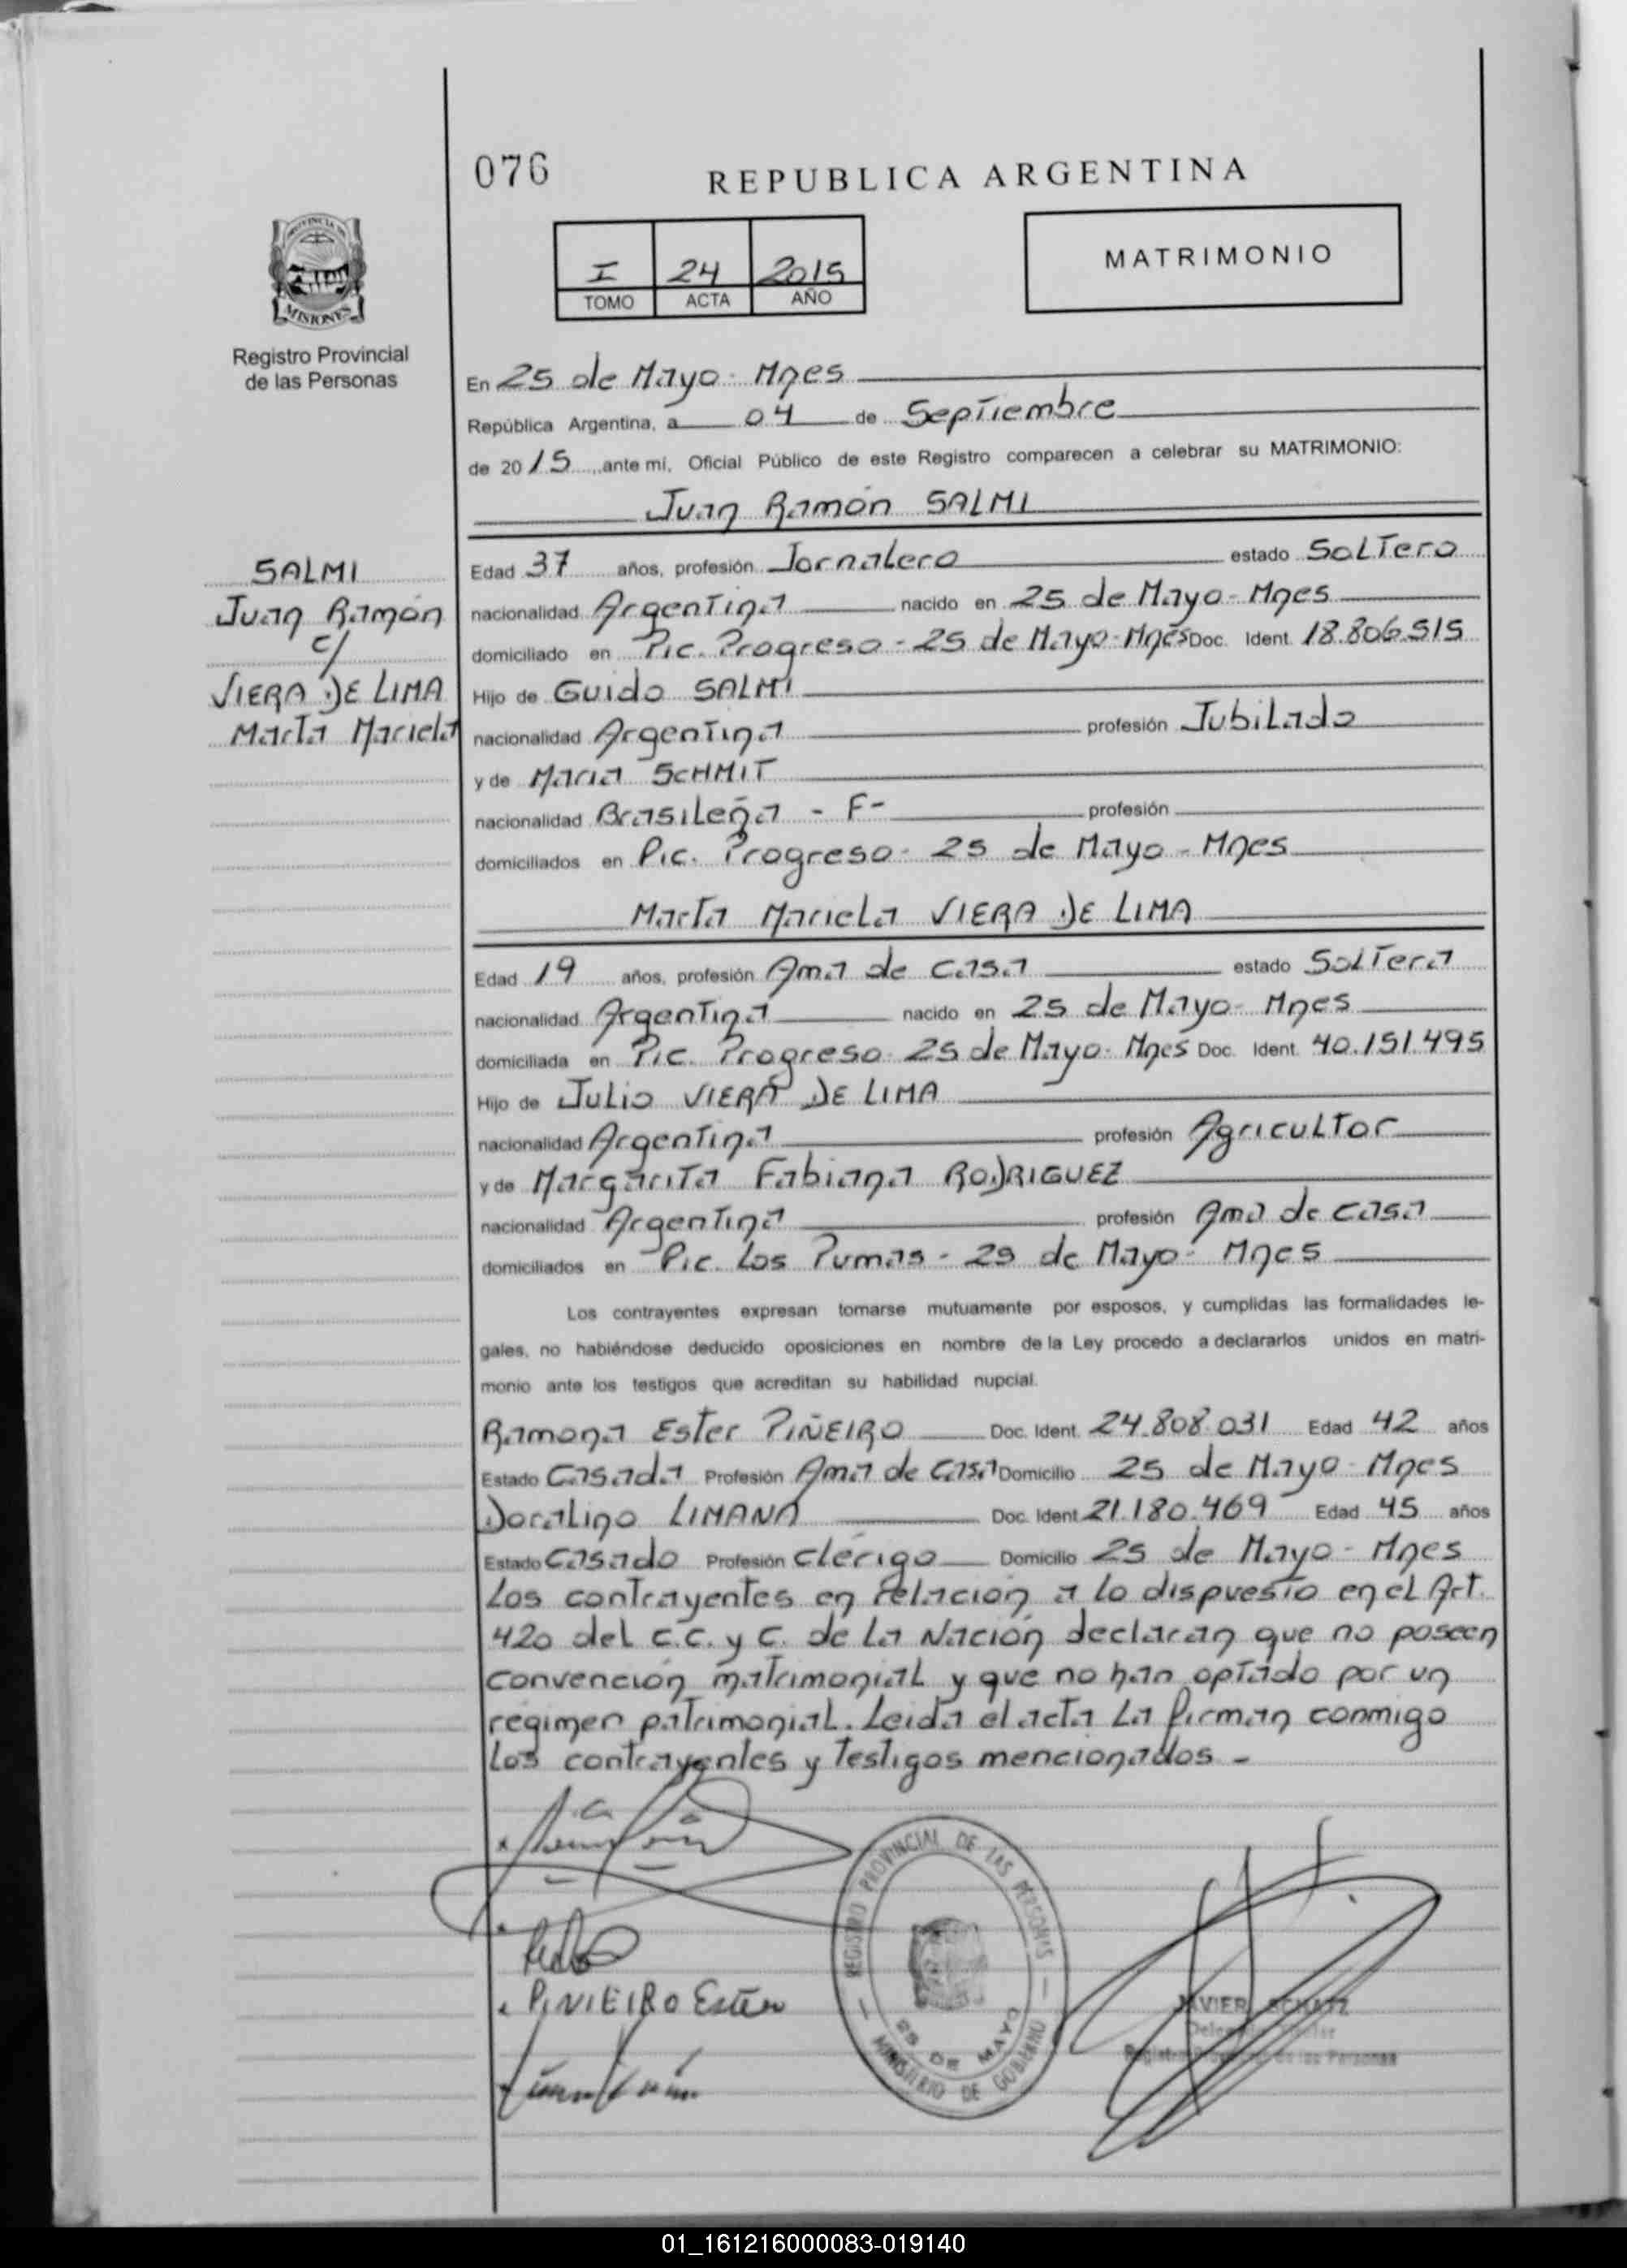 076
REPUBLICA ARGENTINA
I 24 2015
TOMO ACTA AÑO
MATRIMONIO
PROVINCIA DE
MISIONES
Registro Provincial
de las Personas
En 25 de Mayo - Mnes
República Argentina, a 04 de Septiembre
de 2015, ante mí, Oficial Público de este Registro comparecen a celebrar su MATRIMONIO:
Juan Ramón SALMI
SALMI
Juan Ramón
c/
VIERA DE LIMA
Marta Mariela
Edad 37 años, profesión Jornalero estado Soltero
nacionalidad Argentina nacido en 25 de Mayo - Mnes
domiciliado en Pic. Progreso - 25 de Mayo - Mnes Doc. Ident. 18.806.515
Hijo de Guido SALMI
nacionalidad Argentina profesión Jubilado
y de Maria SCHMIT
nacionalidad Brasileña - F- profesión
domiciliados en Pic. Progreso - 25 de Mayo - Mnes
Marta Mariela VIERA DE LIMA
Edad 19 años, profesión Ama de casa estado Soltera
nacionalidad Argentina nacido en 25 de Mayo - Mnes
domiciliada en Pic. Progreso - 25 de Mayo - Mnes Doc. Ident. 40.151.495
Hijo de Julio VIERA DE LIMA
nacionalidad Argentina profesión Agricultor
y de Margarita Fabiana RODRIGUEZ
nacionalidad Argentina profesión Ama de casa
domiciliados en Pic. Los Pumas - 25 de Mayo - Mnes
Los contrayentes expresan tomarse mutuamente por esposos, y cumplidas las formalidades le-
gales, no habiéndose deducido oposiciones en nombre de la Ley procedo a declararlos unidos en matri-
monio ante los testigos que acreditan su habilidad nupcial.
Ramona Ester PIÑEIRO Doc. Ident. 24.808.031 Edad 42 años
Estado Casada Profesión Ama de Casa Domicilio 25 de Mayo - Mnes
Doralino LIMANA Doc. Ident. 21.180.469 Edad 45 años
Estado Casado Profesión Clérigo Domicilio 25 de Mayo - Mnes
Los contrayentes en relación a lo dispuesto en el Art.
420 del C.C. y C. de la Nación declaran que no poseen
convención matrimonial y que no han optado por un
regimen patrimonial. Leida el acta la firman conmigo
los contrayentes y Testigos mencionados -
PINIEIRO Ester
REGISTRO PROVINCIAL DE LAS PERSONAS
25 DE MAYO
MINISTERIO DE GOBIERNO
JAVIER SCHATZ
Registro Provincial de las Personas
01_161216000083-019140